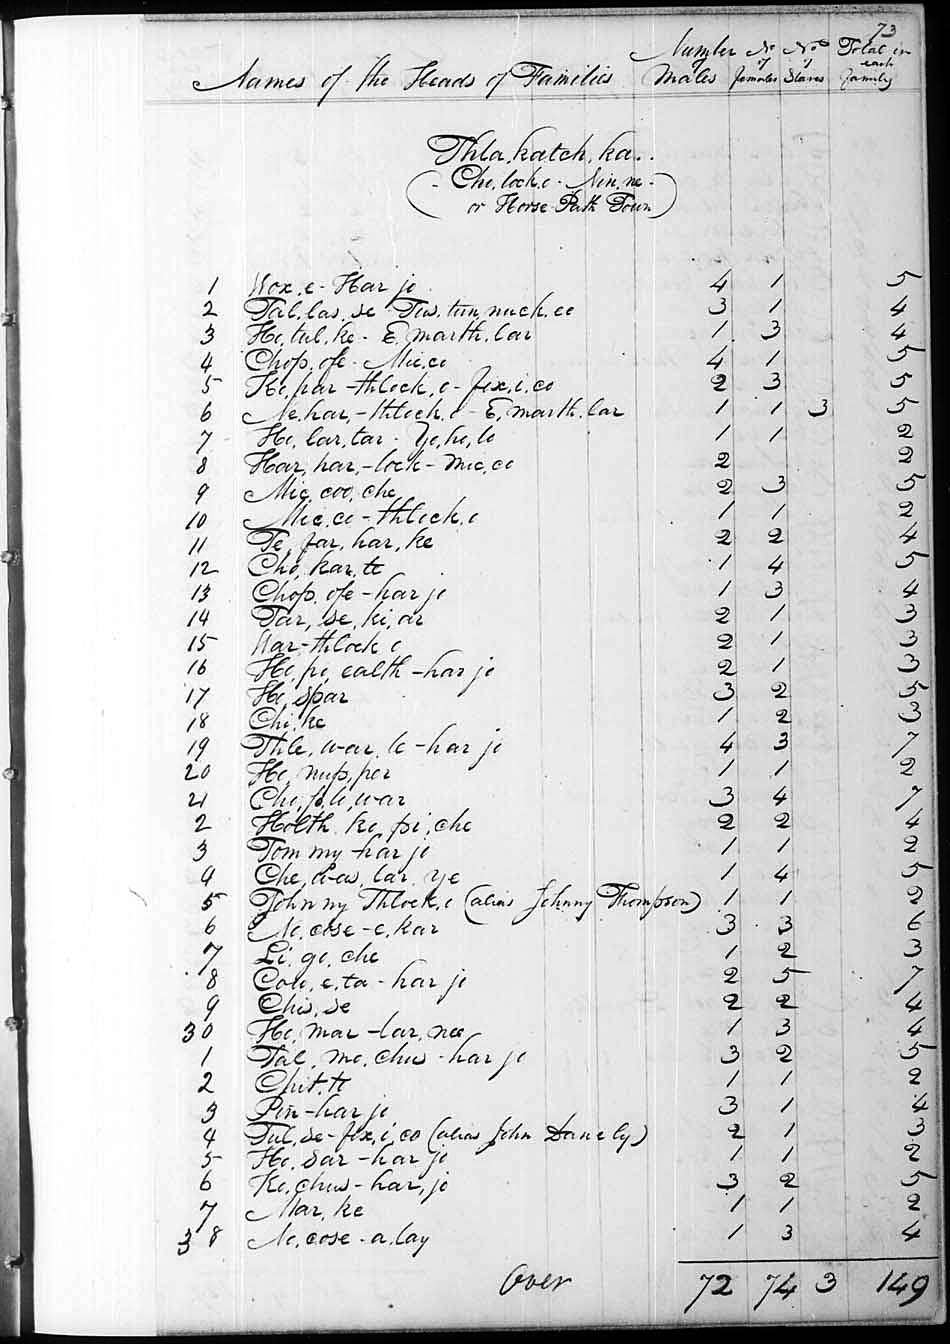 73
Names of the Heads of Families Number of Males No of females No of Slaves Total in each Family
Thla,katch,ka..
(- Cho,lock,o - Nin,ne -
or Horse Path Town)
1 Wox,e - Har jo 4 1 5
2 Tal,las,se Tus,tun,nuck,co 3 1 4
3 Ho,tul,ke - E,marth,lar 1 3 4
4 Chofs,ofe - Mic,co 4 1 5
5 Ko,par -thlock,o - fix,i,co 2 3 5
6 Ne,har,-thlock,o - E,marth,lar 1 1 3 5
7 Ho,lar,tar - Yo,ho,lo 1 1 2
8 Har,har,-lock - Mic,co 2 2
9 Mic,coo,che 2 3 5
10 Mic,co - thlock,o 1 1 2
11 Te,far,har,ke 2 2 4
12 Cho,kar,te 1 4 5
13 Chofs,ofe - har jo 1 3 4
14 Tar,se,ki,ar 2 1 3
15 War-thlock o 2 1 3
16 Ho,po,ealth -har jo 2 1 3
17 Ho,spar 3 2 5
18 Chi,ke 1 2 3
19 Thle,war,le -har jo 4 3 7
20 Ho,nups,per 1 1 2
21 3 4 7
2 Holth,ko,pi,che 2 2 4
3 Tom my -har jo 1 1 2
4 1 4 5
5 Johnny Thlock,o (alias Johnny Thompson) 1 1 2
6 No,cose - e,kar 3 3 6
7 Li,go,che 1 2 3
8 Cow,e,ta - har jo 2 5 7
9 Chis,se 2 2 4
30 Ho,mar -lar,nee 1 3 4
1 Tal,mo,chus -har jo 3 2 5
2 Chit,te 1 1 2
3 Pin -har jo 3 1 4
4 Tul,se - fix,i,co (alias John Danely) 2 1 3
5 Ho,sar -har jo 1 1 2
6 Ko,chus - har,jo 3 2 5
7 Mar,ke 1 1 2
38 No,cose - a,lay 1 3 4
Over 72 74 3 149